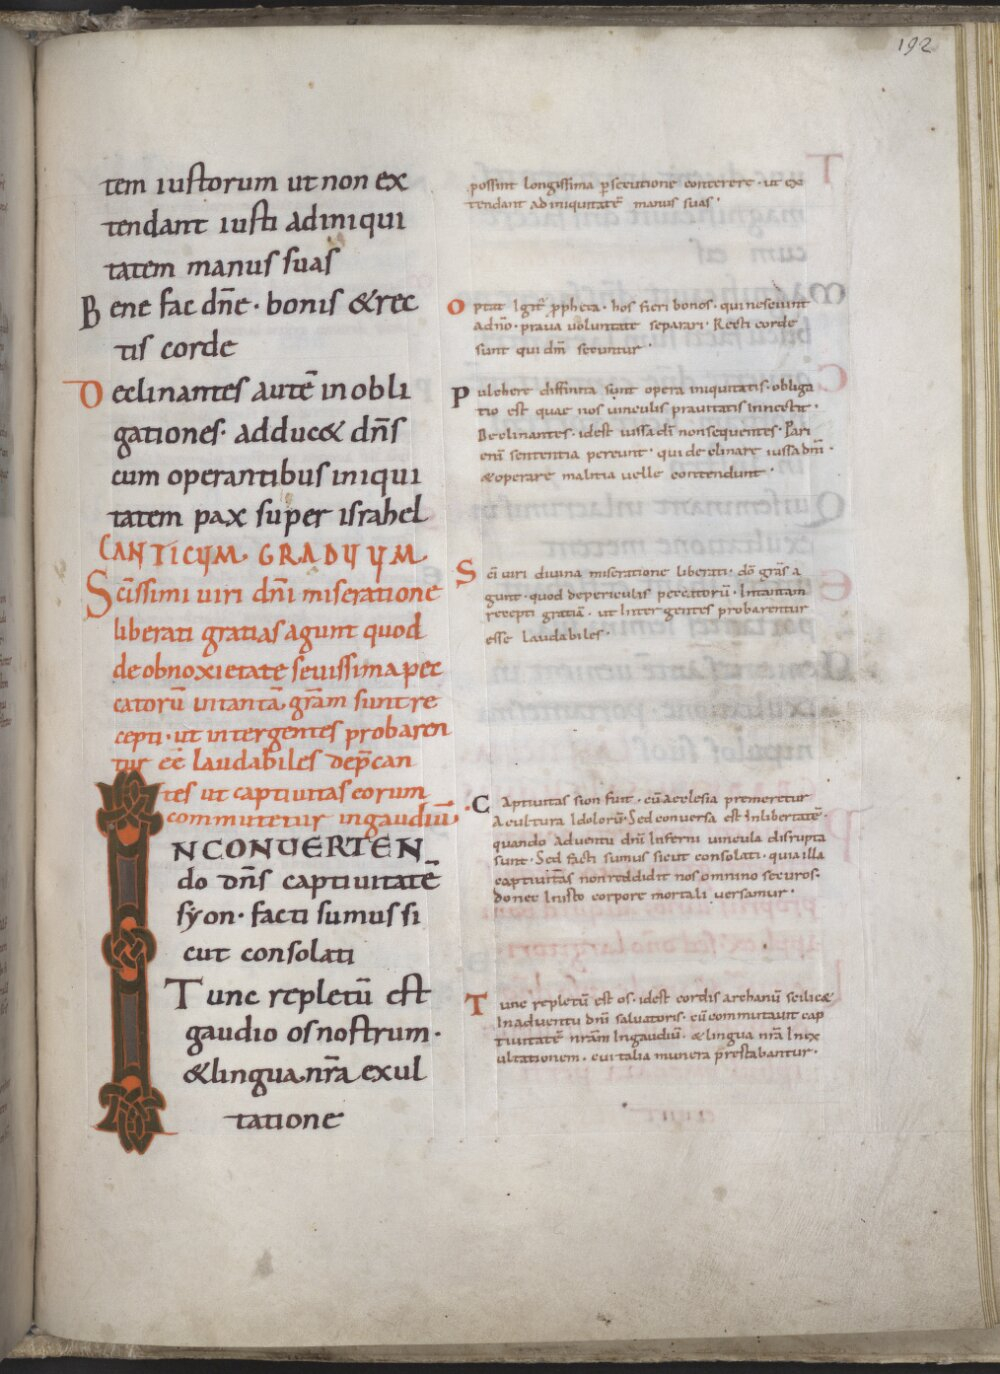 192
tem iustorum ut non ex
tendant iusti ad iniqui
tatem manus suas
Bene fac dn̄e · bonis & rec
tis corde
Declinantes autē in obli
gationes · adduc& dn̄s
cum operantibus iniqui
tatem pax super israhel
CANTICUM GRADUUM
Scīssimi uiri dn̄i miseratione
liberati gratias agunt quod
de obnoxietate seuissima pec
catorū in tantā grām sunt re
cepti · ut inter gentes probaren
tur eē laudabiles dep̄can
tes ut captiuitas eorum
commutetur in gaudiū ·
IN CONUERTEN
do dn̄s captiuitatē
syon · facti sumus si
cut consolati
Tunc repletū est
gaudio os nostrum ·
& lingua nr̄a exul
tatione
possint longissima persecutione conterere · ut ex
tendant ad iniquitatē manus suas ·
Optat igit̄ propheta · hos fieri bonos · qui nesciunt
a dn̄o · praua uoluntate separari · Recti corde
sunt qui dn̄m secuntur ·
Pulchere diffinita sunt opera iniquitatis · obliga
tio est quae nos uinculis prauitatis innectit ·
Declinantes · idest iussa dī non sequentes · Pari
enī sententia pereunt · qui declinare iussa dn̄i ·
& operare malitia uelle contendunt ·
Scī uiri diuina miseratione liberati · dō grās a
gunt · quod de periculis peccatorū · In tantam
recepti gratiā · ut Inter gentes probarentur
esse laudabiles ·
Captiuitas sion fuit · cū aecclesia premeretur
A cultura Idolorū · Sed conuersa est In libertatē ·
quando Aduentu dn̄i Inferni uincula disrupta
sunt · Sed facti sumus sicut consolati · quia illa
captiuitas non reddidit nos omnino securos ·
donec In isto corpore mortali uersamur ·
Tunc repletū est os · idest cordis archanū scilic&
In aduentu dn̄i saluatoris · cū commutauit cap
tiuitatē nr̄am In gaudiū · & lingua nr̄a In ex
ultationem · cui talia munera prestabantur ·